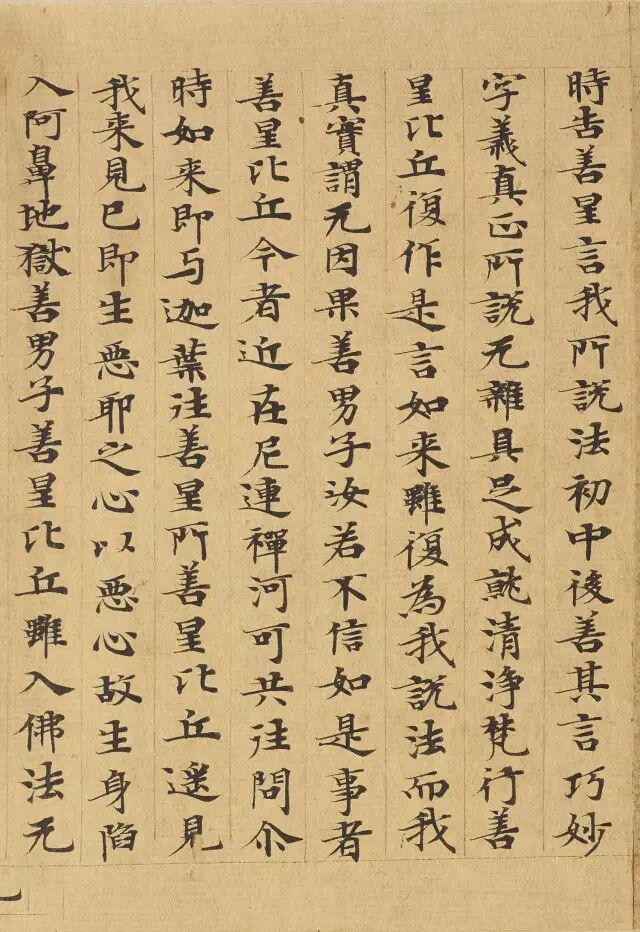 時告善星言我所説法初中後善其言巧妙
字義真正所説无雜具足成就清淨梵行善
星比丘復作是言如来雖復為我説法而我
真實謂无因果善男子汝若不信如是事者
善星比丘今者近在尼連禪河可共往問尒
時如来即与迦葉往善星所善星比丘遥見
我来見已即生惡耶之心以惡心故生身陷
入阿鼻地獄善男子善星比丘雖入佛法无